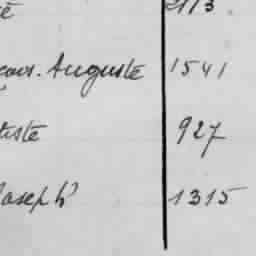 2113
Auguste 1541
tiste 927
Joseph 1315